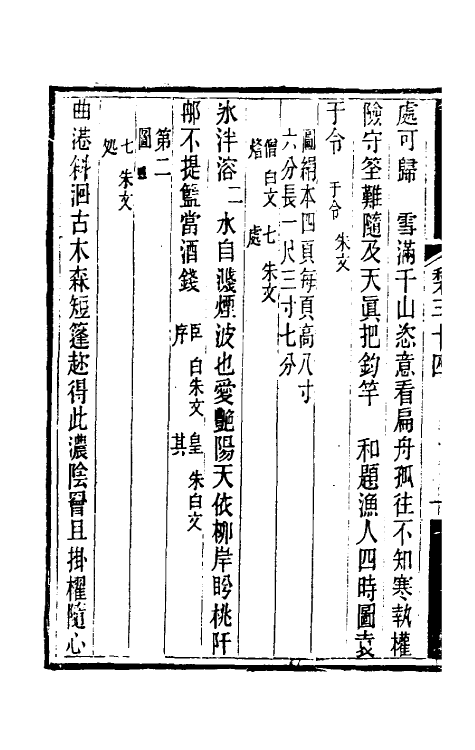 處可歸　雪滿千山恣意看扁舟孤往不知寒執權
險守筌難隨及天眞把鈞竿　和題漁人四時圖袁
于令　于令　朱文
圖絹本四頁每頁高八寸
六分長一尺三寸七分
僧　白文　七　朱文
　　　　　處
冰泮溶二水自濺煙波也愛艷陽天依柳岸盻桃阡
邮不提籃當酒錢　臣　白朱文　皇　朱白文
　　　　　　　　序　　　　　其
第二
圖
七　朱文
処
曲港斜洄古木森短篷趂得此濃陰罾且掛櫂隨心
三十四